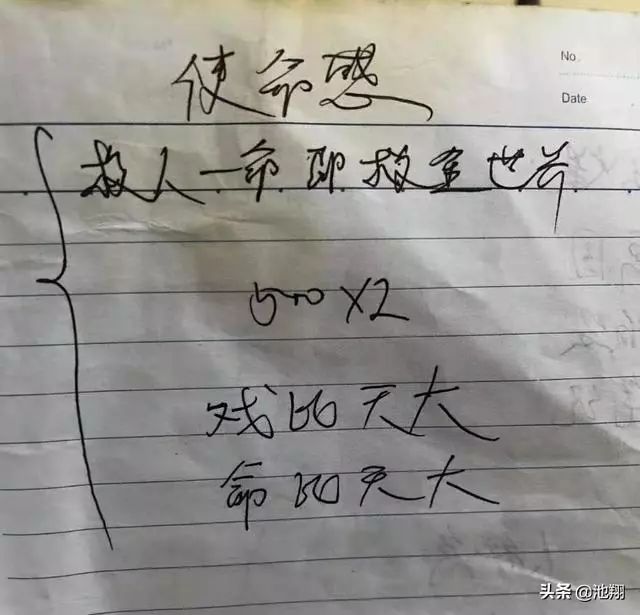 使命感
No.
Date
救人一命 即救全世界
500×2
戏比天大
命比天大
头条 @池翔